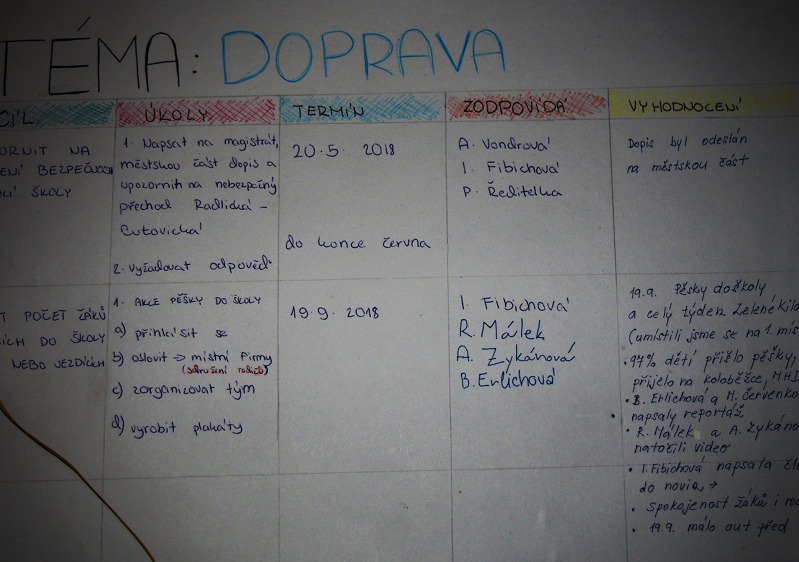 TÉMA: DOPRAVA
CÍL
ÚKOLY
TERMÍN
ZODPOVÍDÁ
VYHODNOCENÍ
ORNIT NA
ENÍ BEZPEČNO
ŠKOLY
1. Napsat na magistrát,
městskou část dopis a
upozornit na nebezpečný
přechod Radlická -
Cutovická
2. vyžadovat odpověď
20.5. 2018
do konce června
A. Vondrová
I. Fibichová
P. Ředitelka
Dopis byl odeslán
na městskou část
T POČET ŽÁKŮ
CÍCH DO ŠKOLY
NEBO JEZDÍCÍCH
1. AKCE PĚŠKY DO ŠKOLY
a) přihlásit se
b) oslovit → místní firmy
(sdružení rodičů)
c) zorganizovat tým
d) vyrobit plakáty
19.9. 2018
I. Fibichová
R. Málek
A. Zykánová
B. Erlichová
19.9. Pěšky do školy
a celý týden Zelené kilo
(umístili jsme se na 1. mís
• 97% dětí přišlo pěšky,
přijelo na koloběžce, MHD
• B. Erlichová a M. Červenko
napsaly reportáž
• R. Málek a A. Zykáno
natočili video
• I. Fibichová napsala čl
do novin →
• Spokojenost žáků i ro
• 19.9. málo aut před